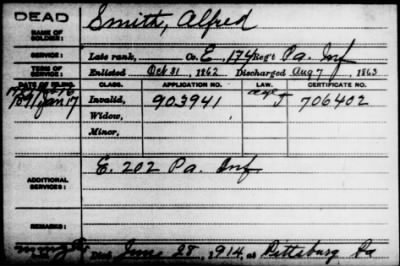 DEAD
NAME OF SOLDIER: Smith, Alfred
SERVICE: Late rank, Co. E, 174 Reg't Pa. Inf
TERM OF SERVICE: Enlisted Oct 31, 1862 Discharged Aug 7, 1863
DATE OF FILING. CLASS. APPLICATION NO. LAW. CERTIFICATE NO.
1891 Jan 17 Invalid, 903941 J 706402
Widow,
Minor,
ADDITIONAL SERVICES: E. 202 Pa. Inf
REMARKS:
Died June 28, 1914, at Pittsburg Pa